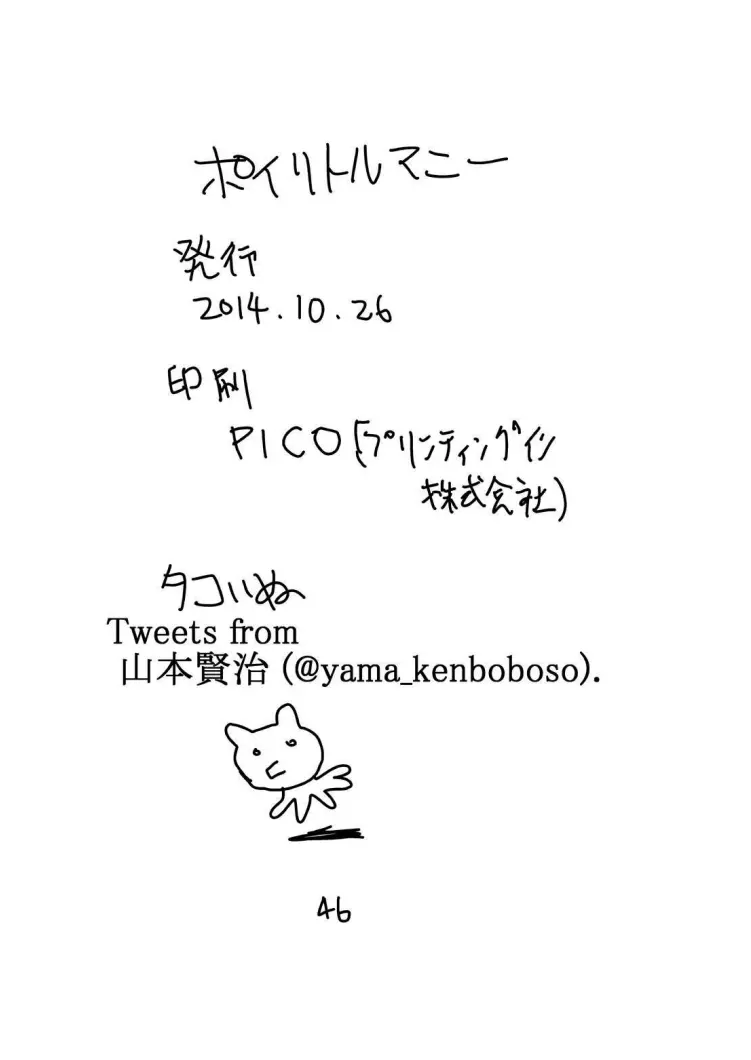 ポイリトルマニー
発行
2014.10.26
印刷
PICO(プリンティングイン
株式会社)
タコいぬ
Tweets from
山本賢治 (@yama_kenboboso).
46